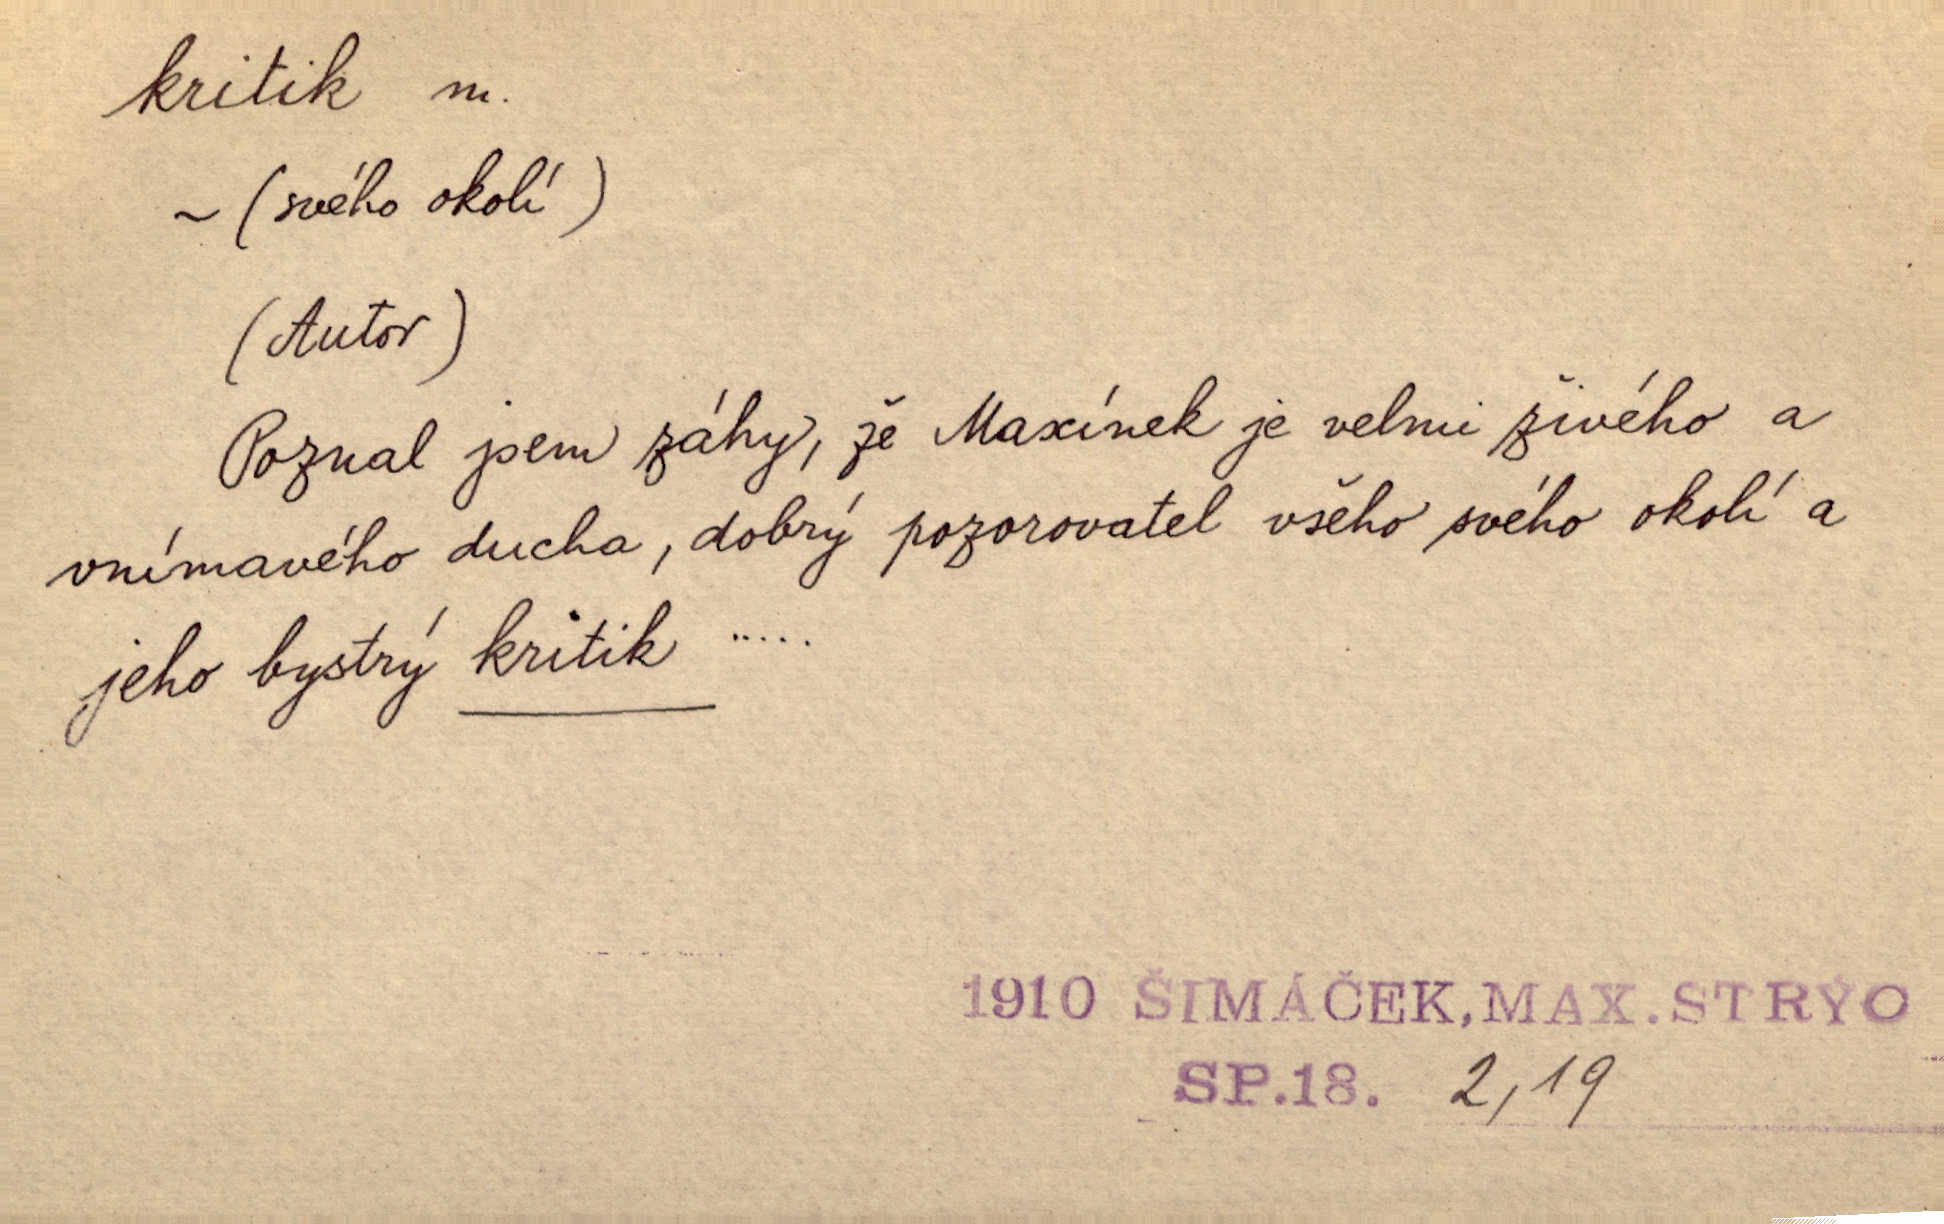 kritik m.
~ (svého okolí)
(Autor)
Poznal jsem záhy, že Maxínek je velmi živého a
vnímavého ducha, dobrý pozorovatel všeho svého okolí a
jeho bystrý kritik .....
1910 ŠIMÁČEK, MAX. STRÝC
SP.18. 2,19